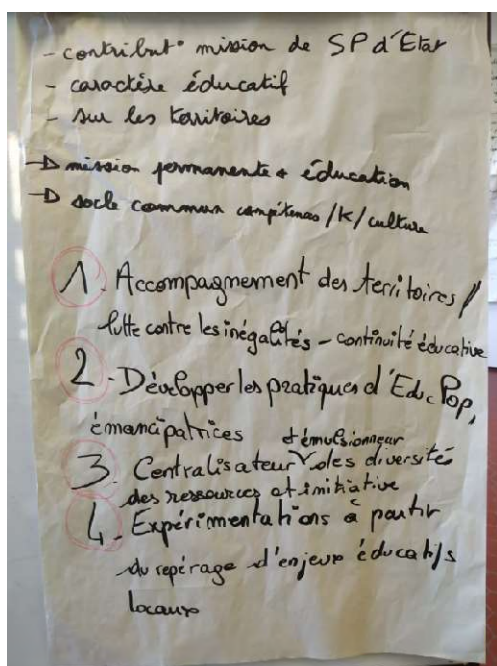 - contribut° mission de SP d'Etat
- caractère éducatif
- sur les territoires
→ mission permanente + éducation
→ socle commun compétences/K/culture
1. Accompagnement des territoires /
lutte contre les inégalités - continuité éducative
2. Développer les pratiques d'Educ Pop,
émancipatrices
et émulsionneur
3. Centralisateur des diversités
des ressources et initiative
4. Expérimentations à partir
du repérage d'enjeux éducatifs
locaux